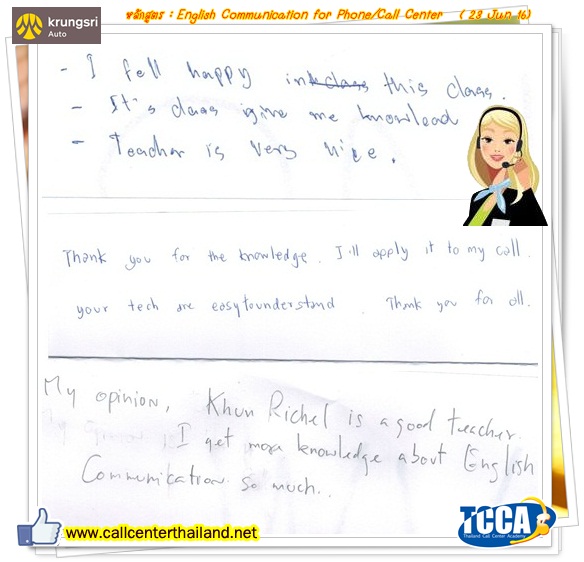 krungsri
Auto
หลักสูตร : English Communication for Phone/Call Center ( 23 Jun 16)
- I fell happy in this class.
- It's class give me knowlead
- Teacher is very nice.
Thank you for the knowledge. I'll apply it to my call.
your tech are easy to understand. Thank you for all.
My opinion, Khun Richel is a good teacher.
I get more knowledge about English
Communication so much..
www.callcenterthailand.net
TCCA
Thailand Call Center Academy